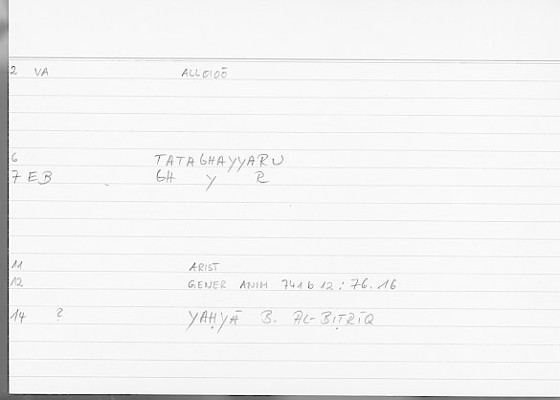 2 VA ALLOIOŌ
6 TATAGHAYYARU
7 EB GH Y R
11 ARIST
12 GENER ANIM 741b12 : 76.16
14 ? YAḤYĀ B. AL-BIṬRĪQ